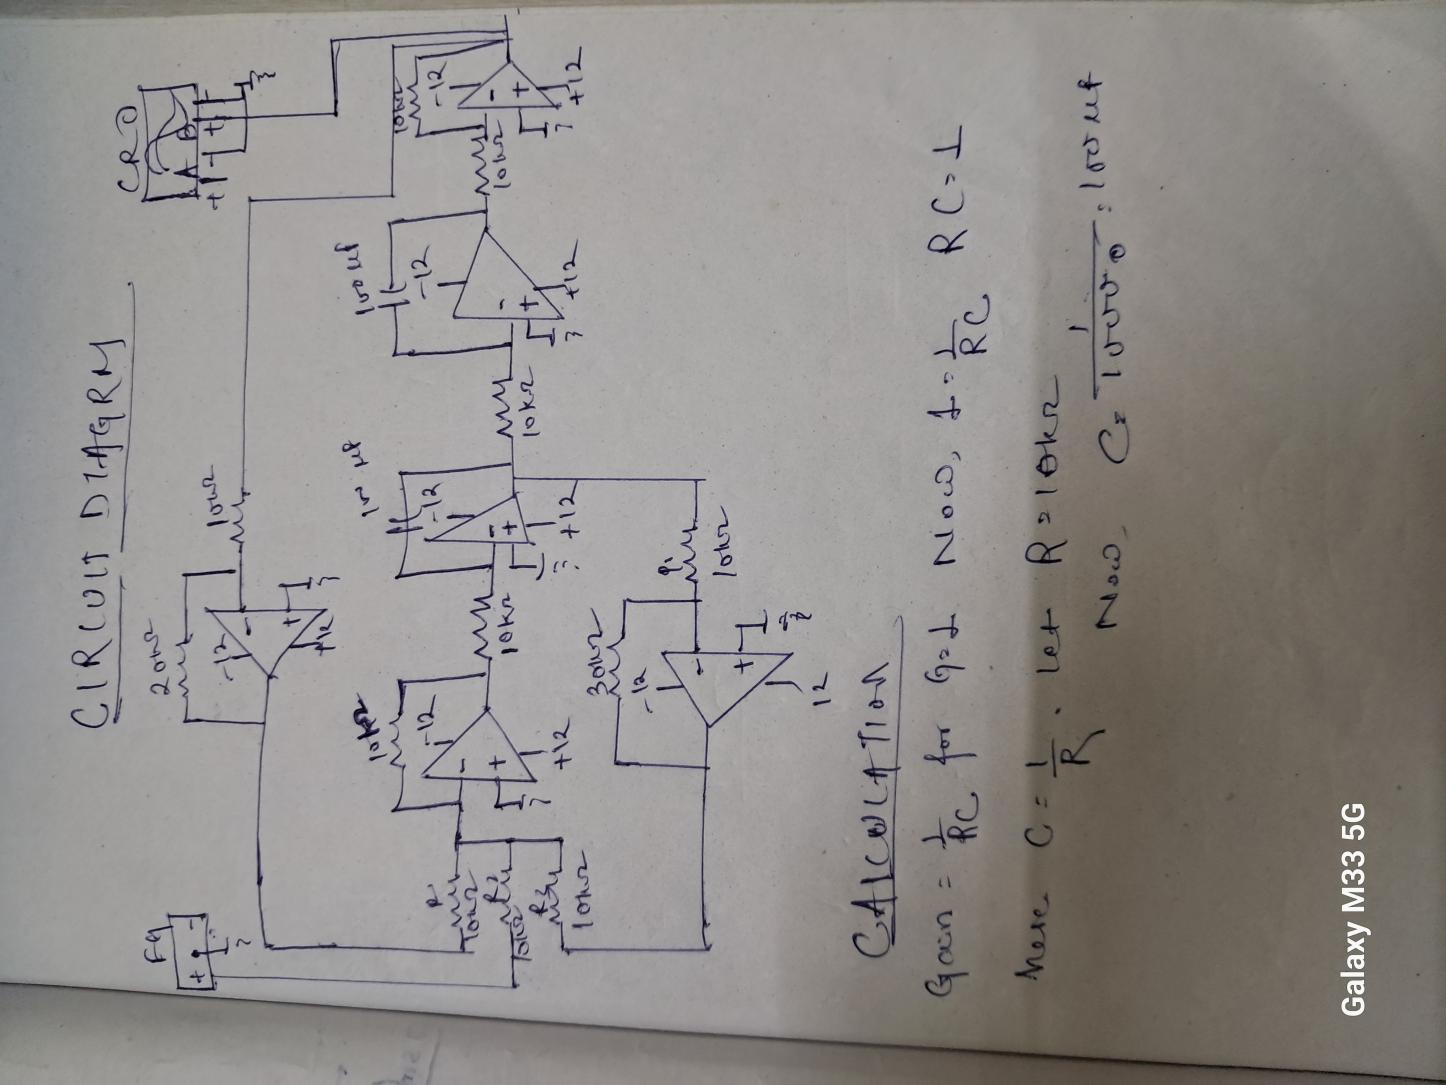 CIRCUIT DIAGRM
FG
+ -
20kΩ
-12
-
+
+12
10kΩ
CRO
A B
+ - + -
R
10kΩ
R2
10kΩ
R3
10kΩ
10kΩ
-12
-
+
+12
10kΩ
100 μf
-12
-
+
+12
10kΩ
100 μf
-12
-
+
+12
10kΩ
10kΩ
-12
-
+
+12
30kΩ
-12
-
+
12
10kΩ
CALCULATION
Gain = 1/RC for G=1 Now, 1 = 1/RC RC=1
Here C = 1/R. let R=10kΩ
Now, C = 1/10000 = 100 μf
Galaxy M33 5G